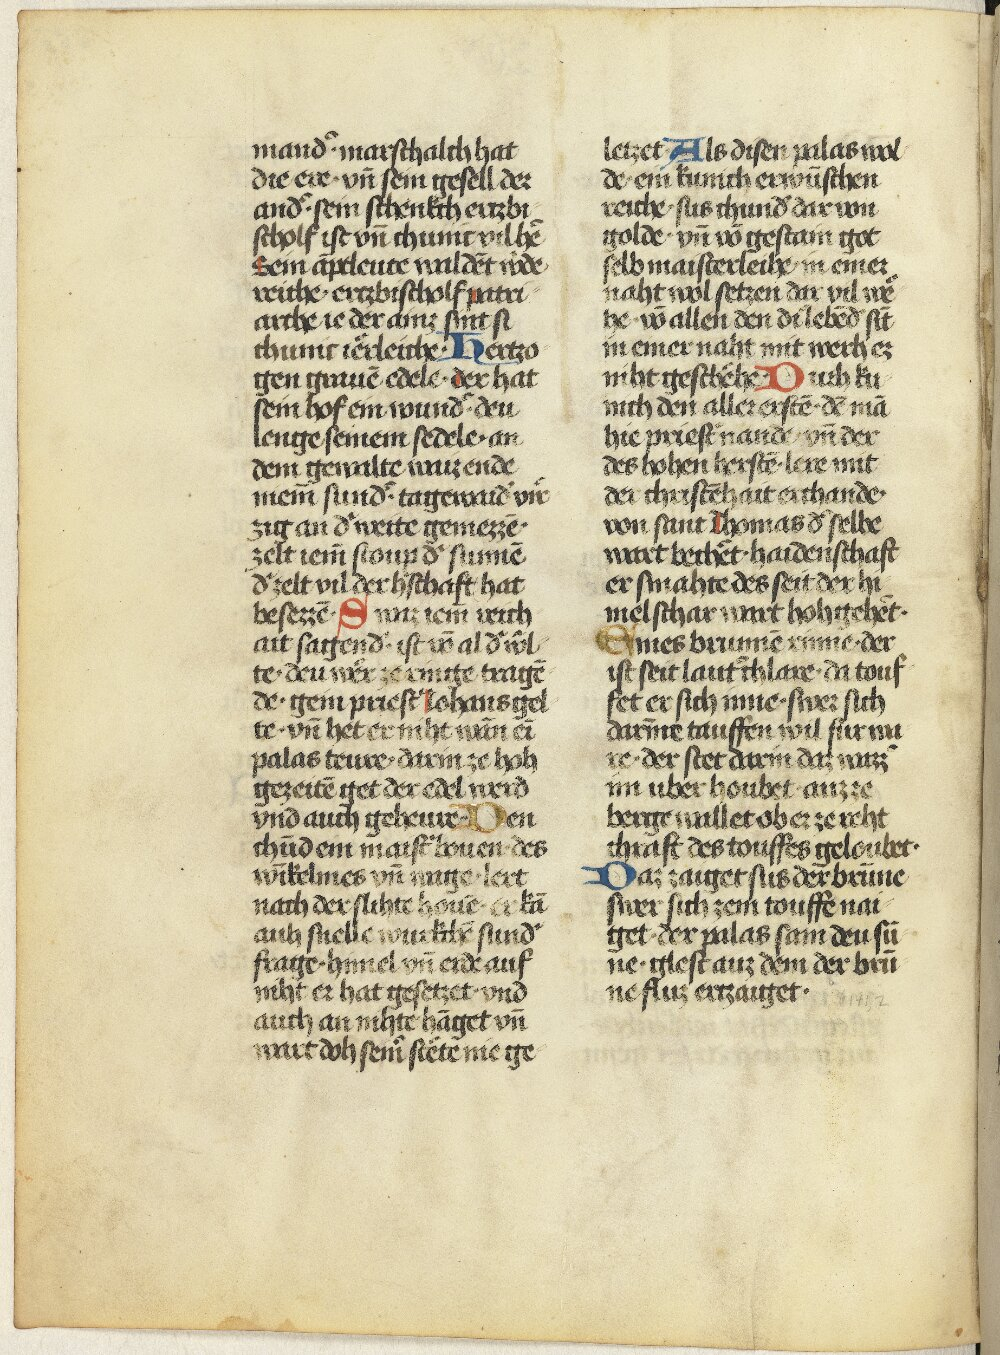 mandͦ· marschalch hat
die ere· vn̄ sein gesell der
andͦ· sein schenkch ertzbi
scholf ist vn̄ chunic vil hē
Sein āpeleute waldēt wͦde
reiche· ertzbischolf patri
arche ie der amz sint si
chunic ierleiche· Hertzo
gen grauē edele· der hat
sein hof ein wundͦ· deu
lenge seinem sedele· an
dem gewalte waizende
niem̄ sundͦ· tagewaid vir
zig an dͦ weite gemezzē·
zelt iem̄ stoup dͦ sunnē
dͦ zelt vil der hͦschaft hat
besezzē· Swaz iem̄ reich
ait sagendͦ· ist vō al dͦ wͦl
te· deu wer ze ringe tragē
de· gein priestͦ Iohans gel
te· vn̄ het er niht wān ei
palas teure· darin ze hoh
gezeitē get der edel werd
vnd auch geheure· Den
chūd ein maistͦ bouen· des
winkelmes vn̄ wage· lert
nach der slihte houe· er kā
auh snelle wurkchē sundͦ
frage· himel vn̄ erde auf
niht er hat gesetzet· vnd
auch an nihte hāget vn̄
wart doh seinͦ stētē nie ge
letzet· Als disen palas wol
de· ein kunich erwūschen
reiche· sus chundͦ dar von
golde· vn̄ vō gestain got
selb maisterleihe· in einer
naht wol setzen dar vil wē
he· vō allen den di lebēd sīt
in einer naht mit werh ez
niht geschehe· Duch ku
nich den aller erstē· dē mā
hie priestͦ nande· vn̄ der
des hohen herstē· lere mit
der christēhait erchande·
von sant Thomas dͦ selbe
wart bechēt· haidenschaft
er smahte des seit der hi
melschar wart hoh gehēt·
Eines brunnē rinne· der
ist seit laut chlare· da touf
fet er sich inne· swer sich
darīne tauffen wil fur wa
re· der stet darin daz wazzͦ
im uber houbet· auz ze
berge wallet ob er ze reht
chraft des touffes geloubet·
Daz zaiget sus der brūne
swer sich zem touffe nai
get· der palas sam deu sū
ne· glest auz dem der brū
ne fluz ertzaiget·